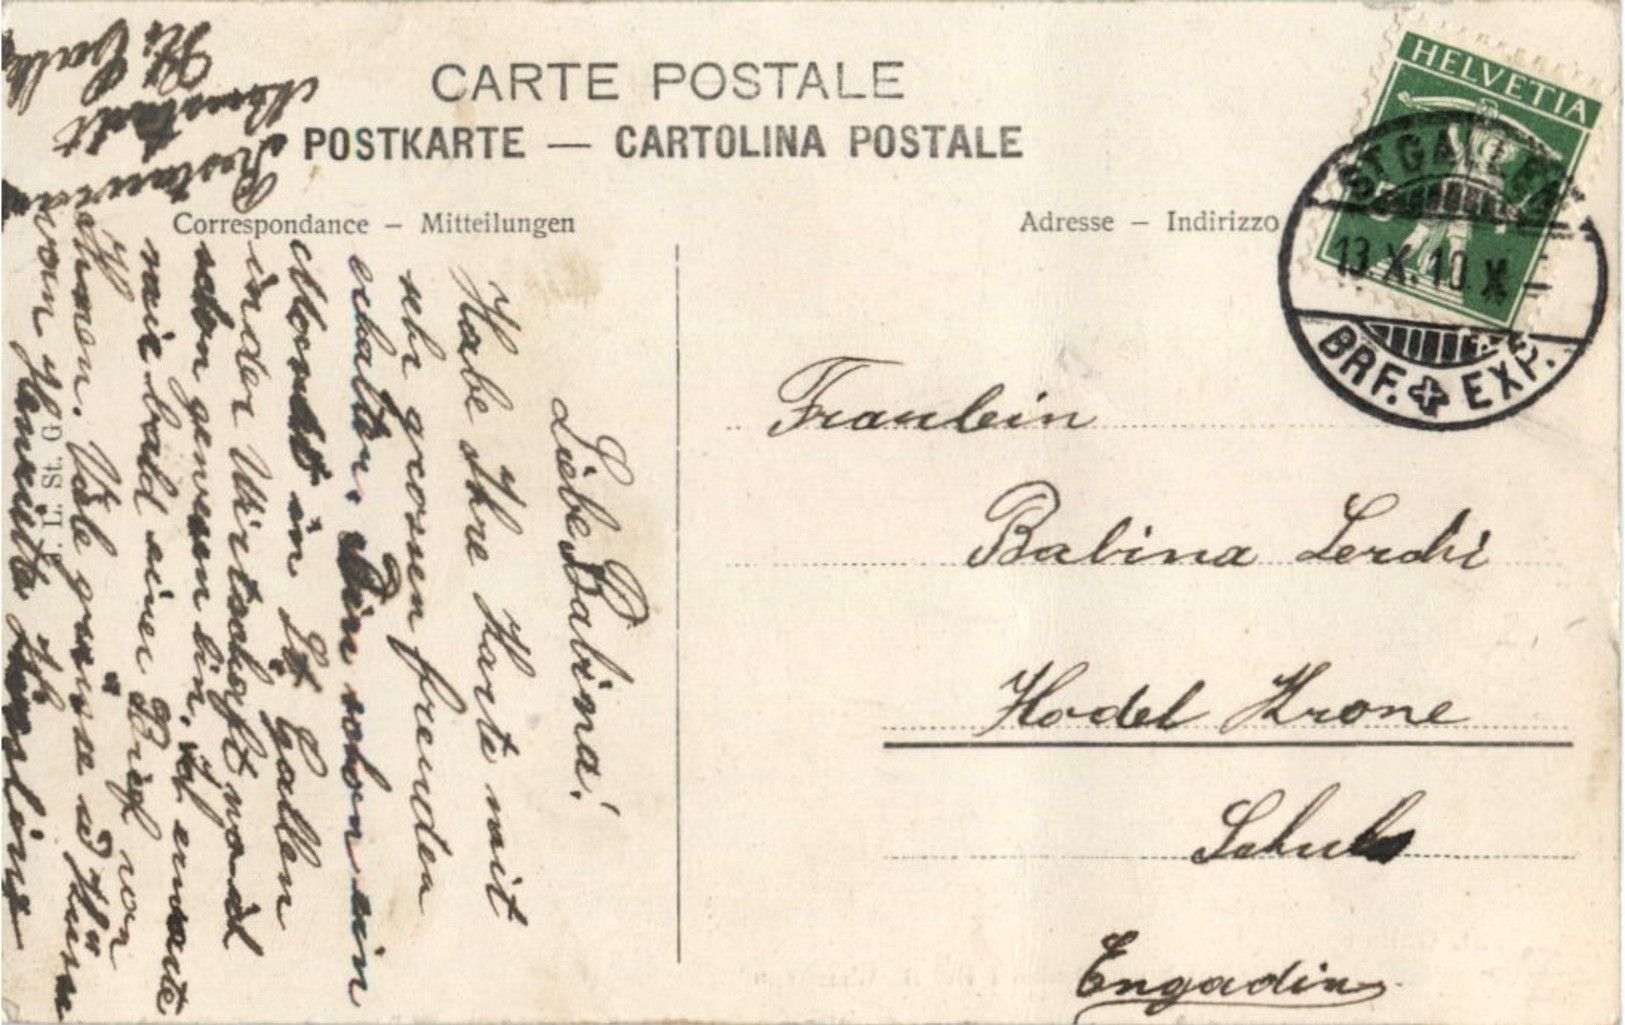 CARTE POSTALE
POSTKARTE — CARTOLINA POSTALE
Correspondance – Mitteilungen
Adresse – Indirizzo
HELVETIA
ST GALLEN
13.X.10.X
BRF. EXP.
Fraulein
Babina Lerchi
Hodel Krone
Schuls
Engadin
Liebe Babina!
Habe Ihre Karte mit
sehr grossen freuden
erhalten. Bin schon ein
Monat in St Gallen
in der Wirtschaft wo ich
schon gewesen bin. Ich erwarte
mir bald einen Brief von
Ihnen. Viele grüsse u Küsse
von
Restaurant
St. Gall
L. St. G.